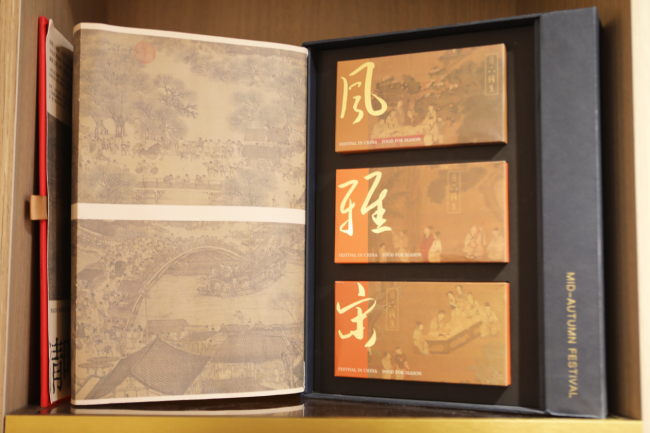 風
FESTIVAL IN CHINA FOOD FOR SEASON
雅
FESTIVAL IN CHINA FOOD FOR SEASON
宋
FESTIVAL IN CHINA FOOD FOR SEASON
MID-AUTUMN FESTIVAL